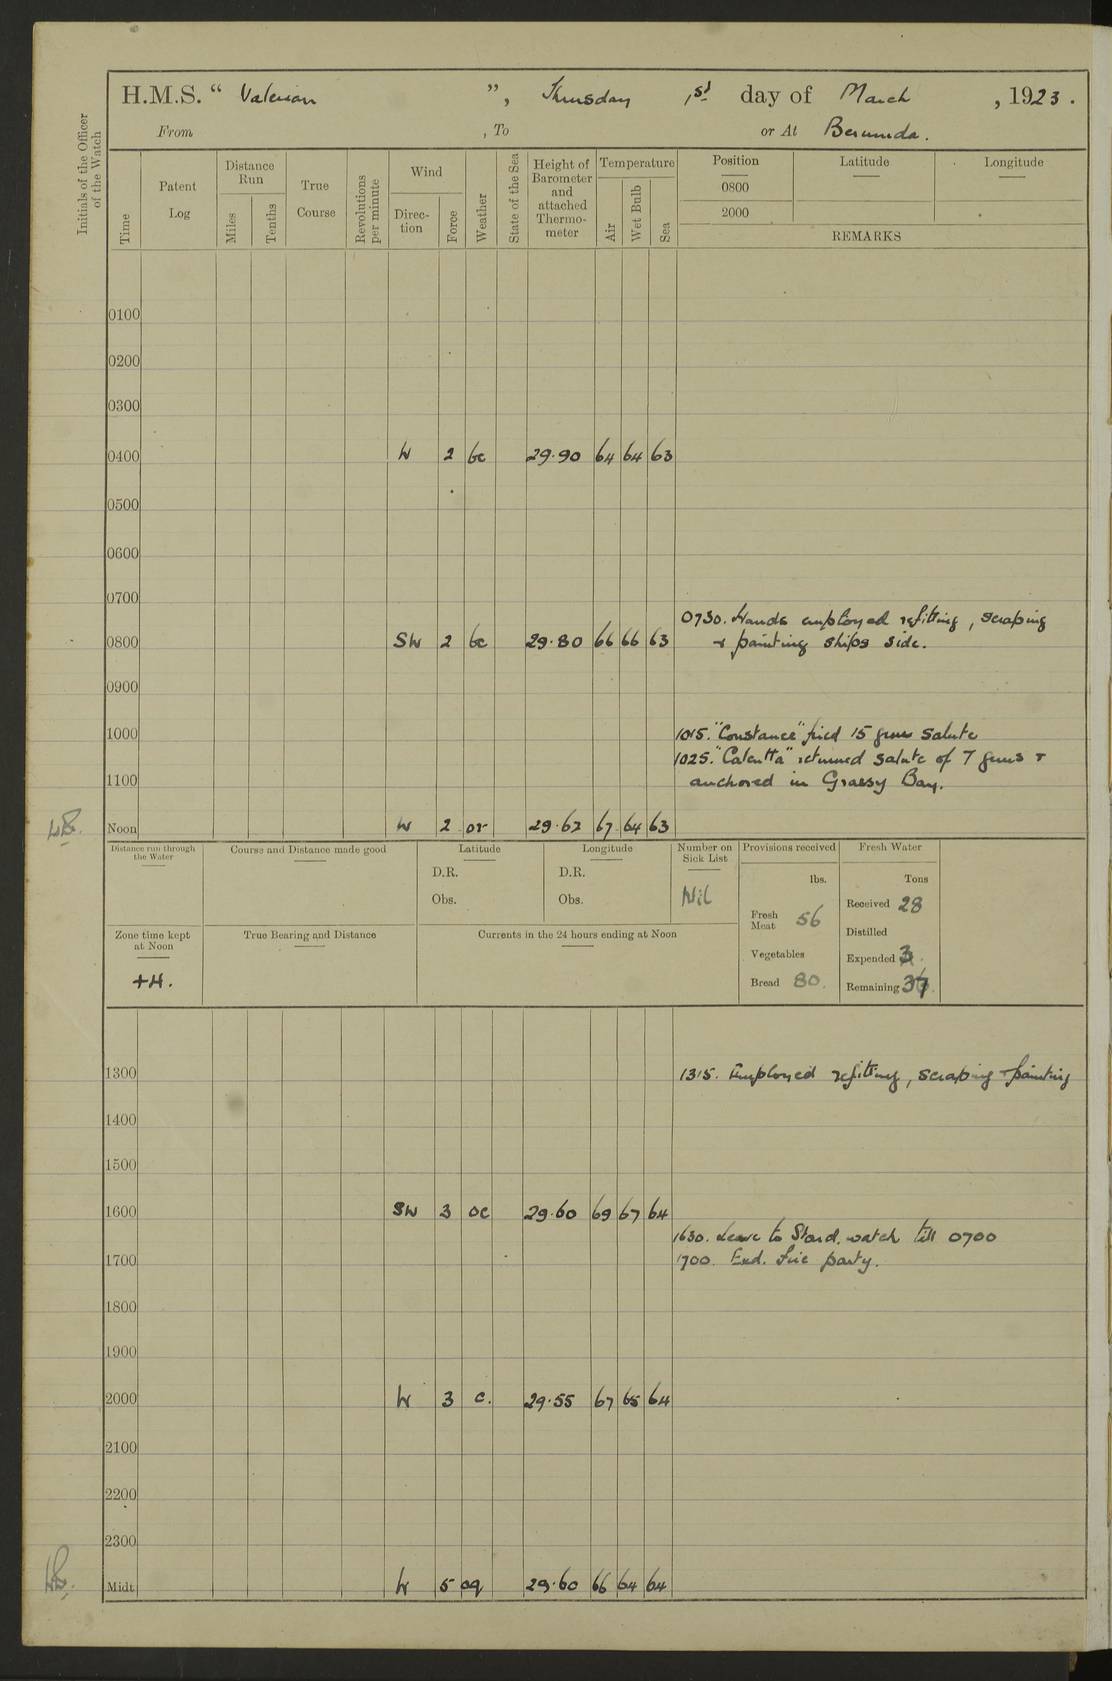 H.M.S. “ Valerian ”, Thursday 1st day of March , 1923 .
From , To or At Bermuda.
Initials of the Officer of the Watch
Time
Patent Log
Distance Run
Miles
Tenths
True Course
Revolutions per minute
Wind
Direc-tion
Force
Weather
State of the Sea
Height of Barometer and attached Thermo-meter
Temperature
Air
Wet Bulb
Sea
Position Latitude Longitude
0800
2000
REMARKS
0100
0200
0300
0400 W 2 bc 29.90 64 64 63
0500
0600
0700
0730. Hands employed refitting, scraping
0800 SW 2 bc 29.80 66 66 63 & painting ships side.
0900
1000 1015. "Constance" fired 15 guns salute
1025. "Calcutta" returned salute of 7 guns &
1100 anchored in Grassy Bay.
Noon W 2 or 29.62 67 64 63
Distance run through the Water
Course and Distance made good
Latitude
D.R.
Obs.
Longitude
D.R.
Obs.
Number on Sick List
Nil
Provisions received
lbs.
Fresh Meat 56
Vegetables
Bread 80.
Fresh Water
Tons
Received 28
Distilled
Expended 3
Remaining 37
Zone time kept at Noon
+4.
True Bearing and Distance
Currents in the 24 hours ending at Noon
1300 1315. Employed refitting, scraping & painting
1400
1500
1600 SW 3 oc 29.60 69 67 64
1630. Leave to Starbd. watch till 0700
1700 1700. Exd. Fire party.
1800
1900
2000 W 3 c. 29.55 67 65 64
2100
2200
2300
Midt. W 5 oq 29.60 66 64 64